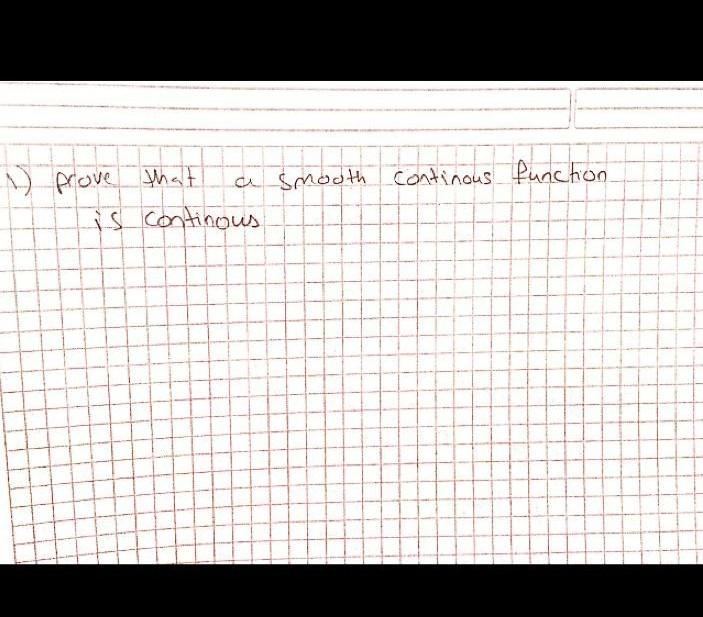 1) prove that a smooth continous function
is continous